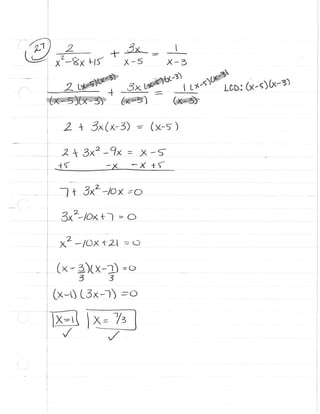 27) 2/(x²-8x+15) + 3x/(x-5) = 1/(x-3)
2(x-5)(x-3)/((x-5)(x-3)) + 3x(x-5)(x-3)/(x-5) = 1(x-5)(x-3)/(x-3) LCD: (x-5)(x-3)
2 + 3x(x-3) = (x-5)
2 + 3x² - 9x = x - 5
+5 -x -x +5
7 + 3x² - 10x = 0
3x² - 10x + 7 = 0
x² - 10x + 21 = 0
(x - 3/3)(x - 7/3) = 0
(x-1)(3x-7) = 0
x=1 x = 7/3
✓ ✓